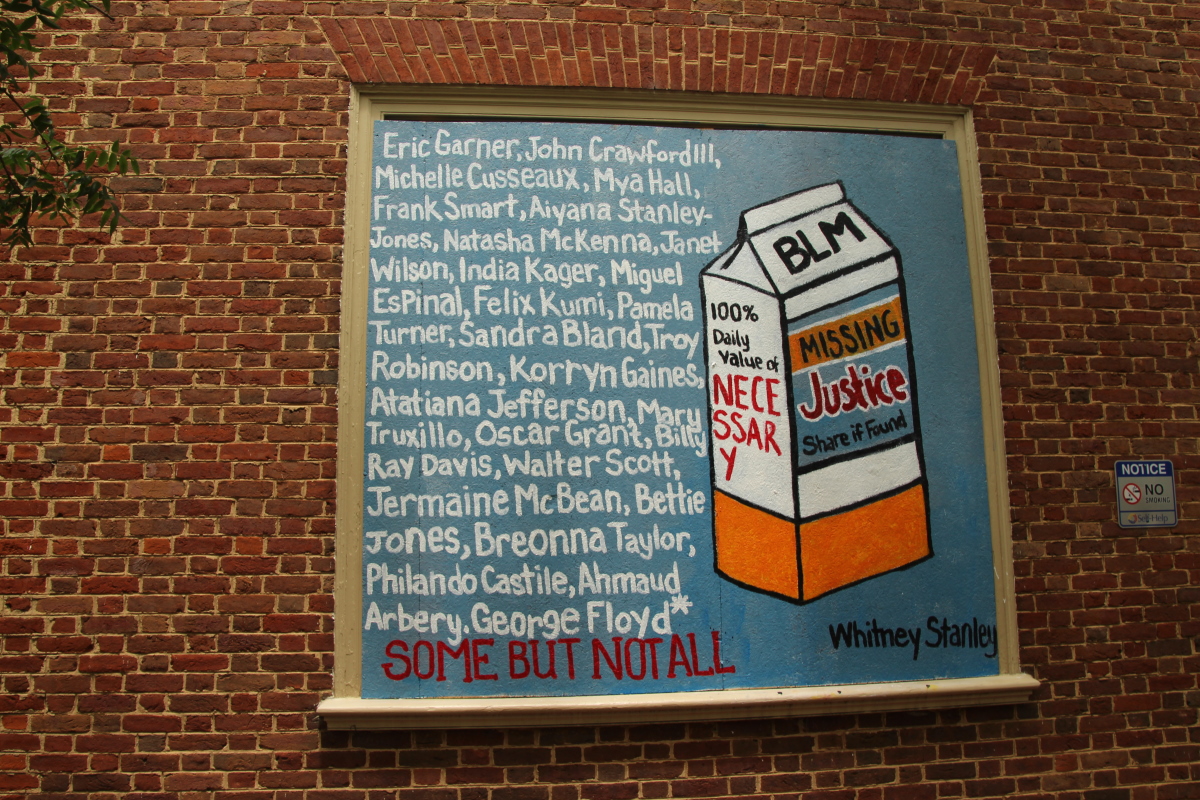 Eric Garner, John Crawford III,
Michelle Cusseaux, Mya Hall,
Frank Smart, Aiyana Stanley-
Jones, Natasha McKenna, Janet
Wilson, India Kager, Miguel
Espinal, Felix Kumi, Pamela
Turner, Sandra Bland, Troy
Robinson, Korryn Gaines,
Atatiana Jefferson, Mary
Truxillo, Oscar Grant, Billy
Ray Davis, Walter Scott,
Jermaine McBean, Bettie
Jones, Breonna Taylor,
Philando Castile, Ahmaud
Arbery, George Floyd*
SOME BUT NOT ALL
BLM
100%
Daily
Value of
NECE
SSAR
Y
MISSING
Justice
Share if Found
Whitney Stanley
NOTICE
NO
SMOKING
Self-Help